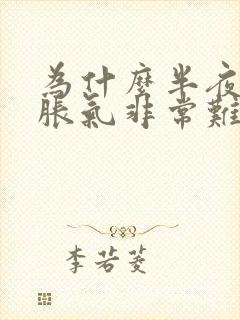 為什麼半夜
脹氣非常難
李若菱